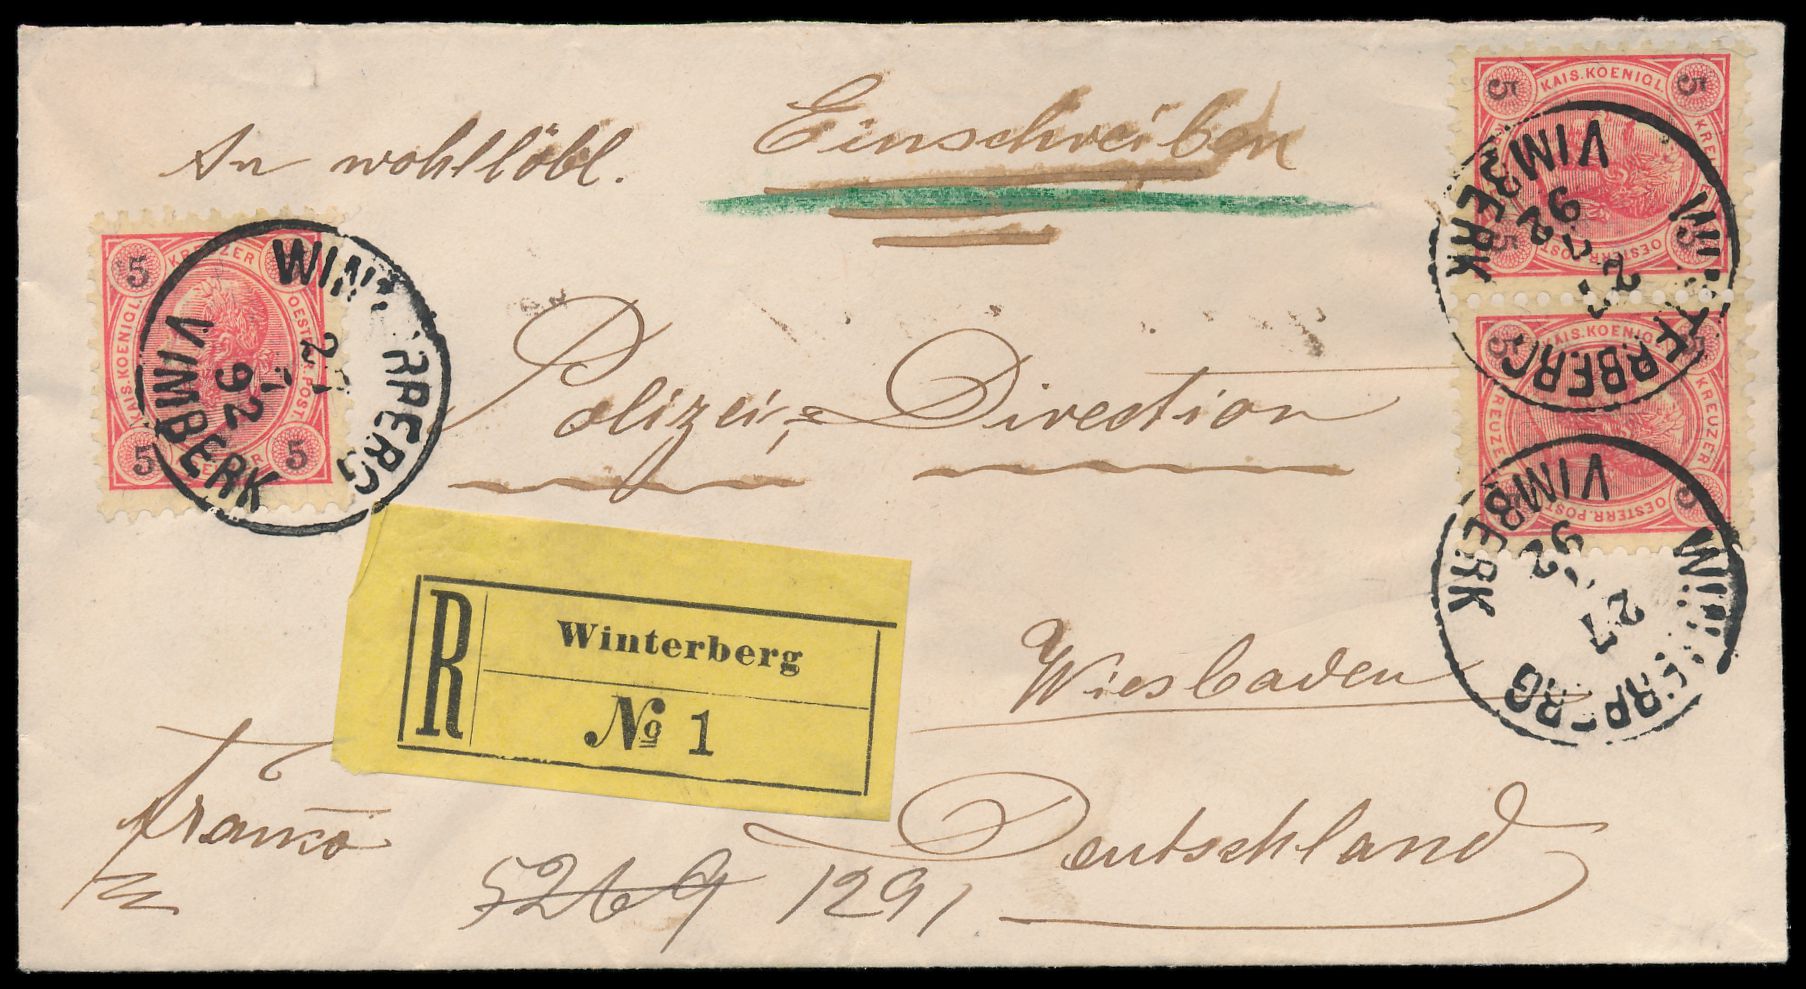 An wohllöbl.
Einschreiben
Polizei-Direction
Wiesbaden
Deutschland
franco
5269 1291
R Winterberg
№ 1
5 KREUZER 5
KAIS. KOENIGL. OESTERR. POST.
5 5
WINTERBERG
92
VIMBERK
5 KAIS. KOENIGL. 5
KREUZER
5 OESTERR. POST. 5
WINTERBERG
27
92
VIMBERK
5 KAIS. KOENIGL. 5
KREUZER KREUZER
OESTERR. POST. 5
WINTERBERG
27
92
VIMBERK